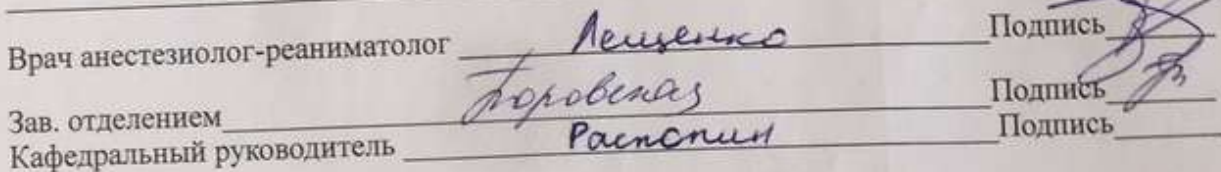 Врач анестезиолог-реаниматолог Лещенко Подпись
Зав. отделением Боровская Подпись
Кафедральный руководитель Распопин Подпись